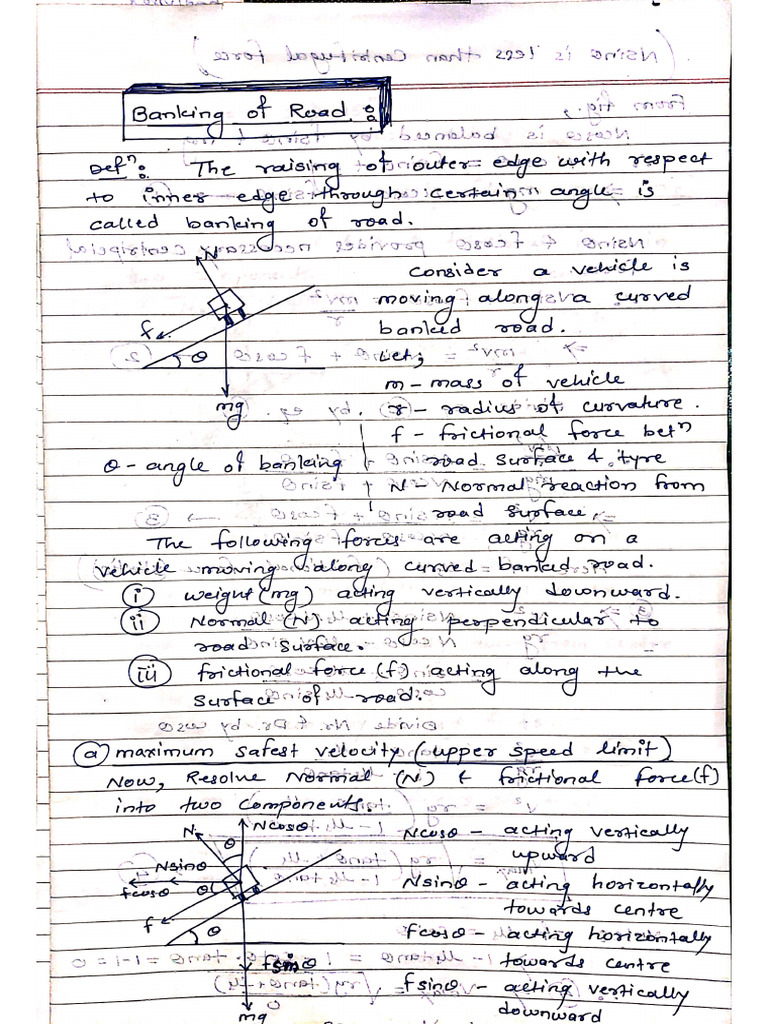 Banking of Road :
Defⁿ : The raising of outer edge with respect
to inner edge through certain angle is
called banking of road.
N
f
θ
mg
consider a vehicle is
moving along a curved
banked road.
Let,
m - mass of vehicle
r - radius of curvature.
f - frictional force betⁿ
θ - angle of banking road surface & tyre
N - Normal reaction from
road surface.
The following forces are acting on a
vehicle moving along curved banked road.
i weight (mg) acting vertically downward.
ii Normal (N) acting perpendicular to
road surface.
iii frictional force (f) acting along the
surface of road.
a maximum safest velocity (upper speed limit)
Now, Resolve Normal (N) & frictional force (f)
into two components.
N
Ncosθ
θ
Nsinθ
fcosθ
θ
f
θ
fsinθ
mg
Ncosθ - acting vertically
upward
Nsinθ - acting horizontally
towards centre
fcosθ - acting horizontally
towards centre
fsinθ - acting vertically
downward